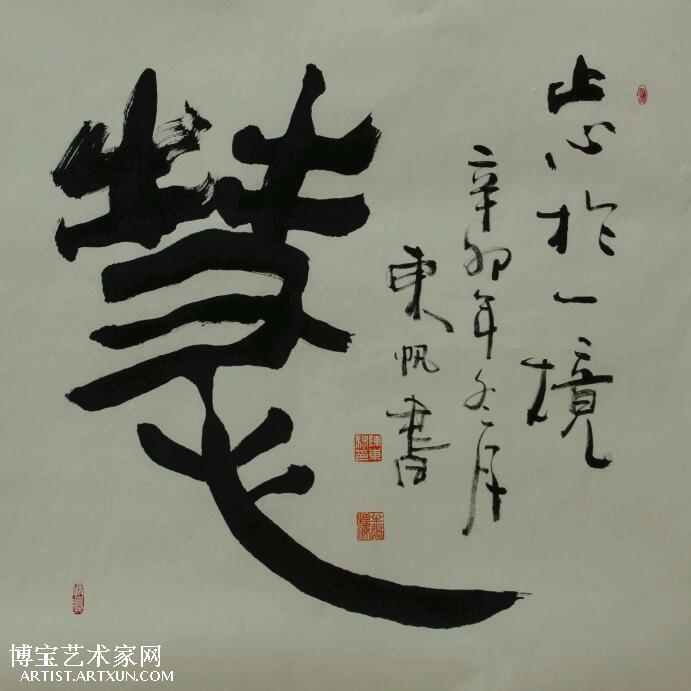 慧
止心於一境
辛卯年冬月
東帆書
博宝艺术家网
ARTIST.ARTXUN.COM